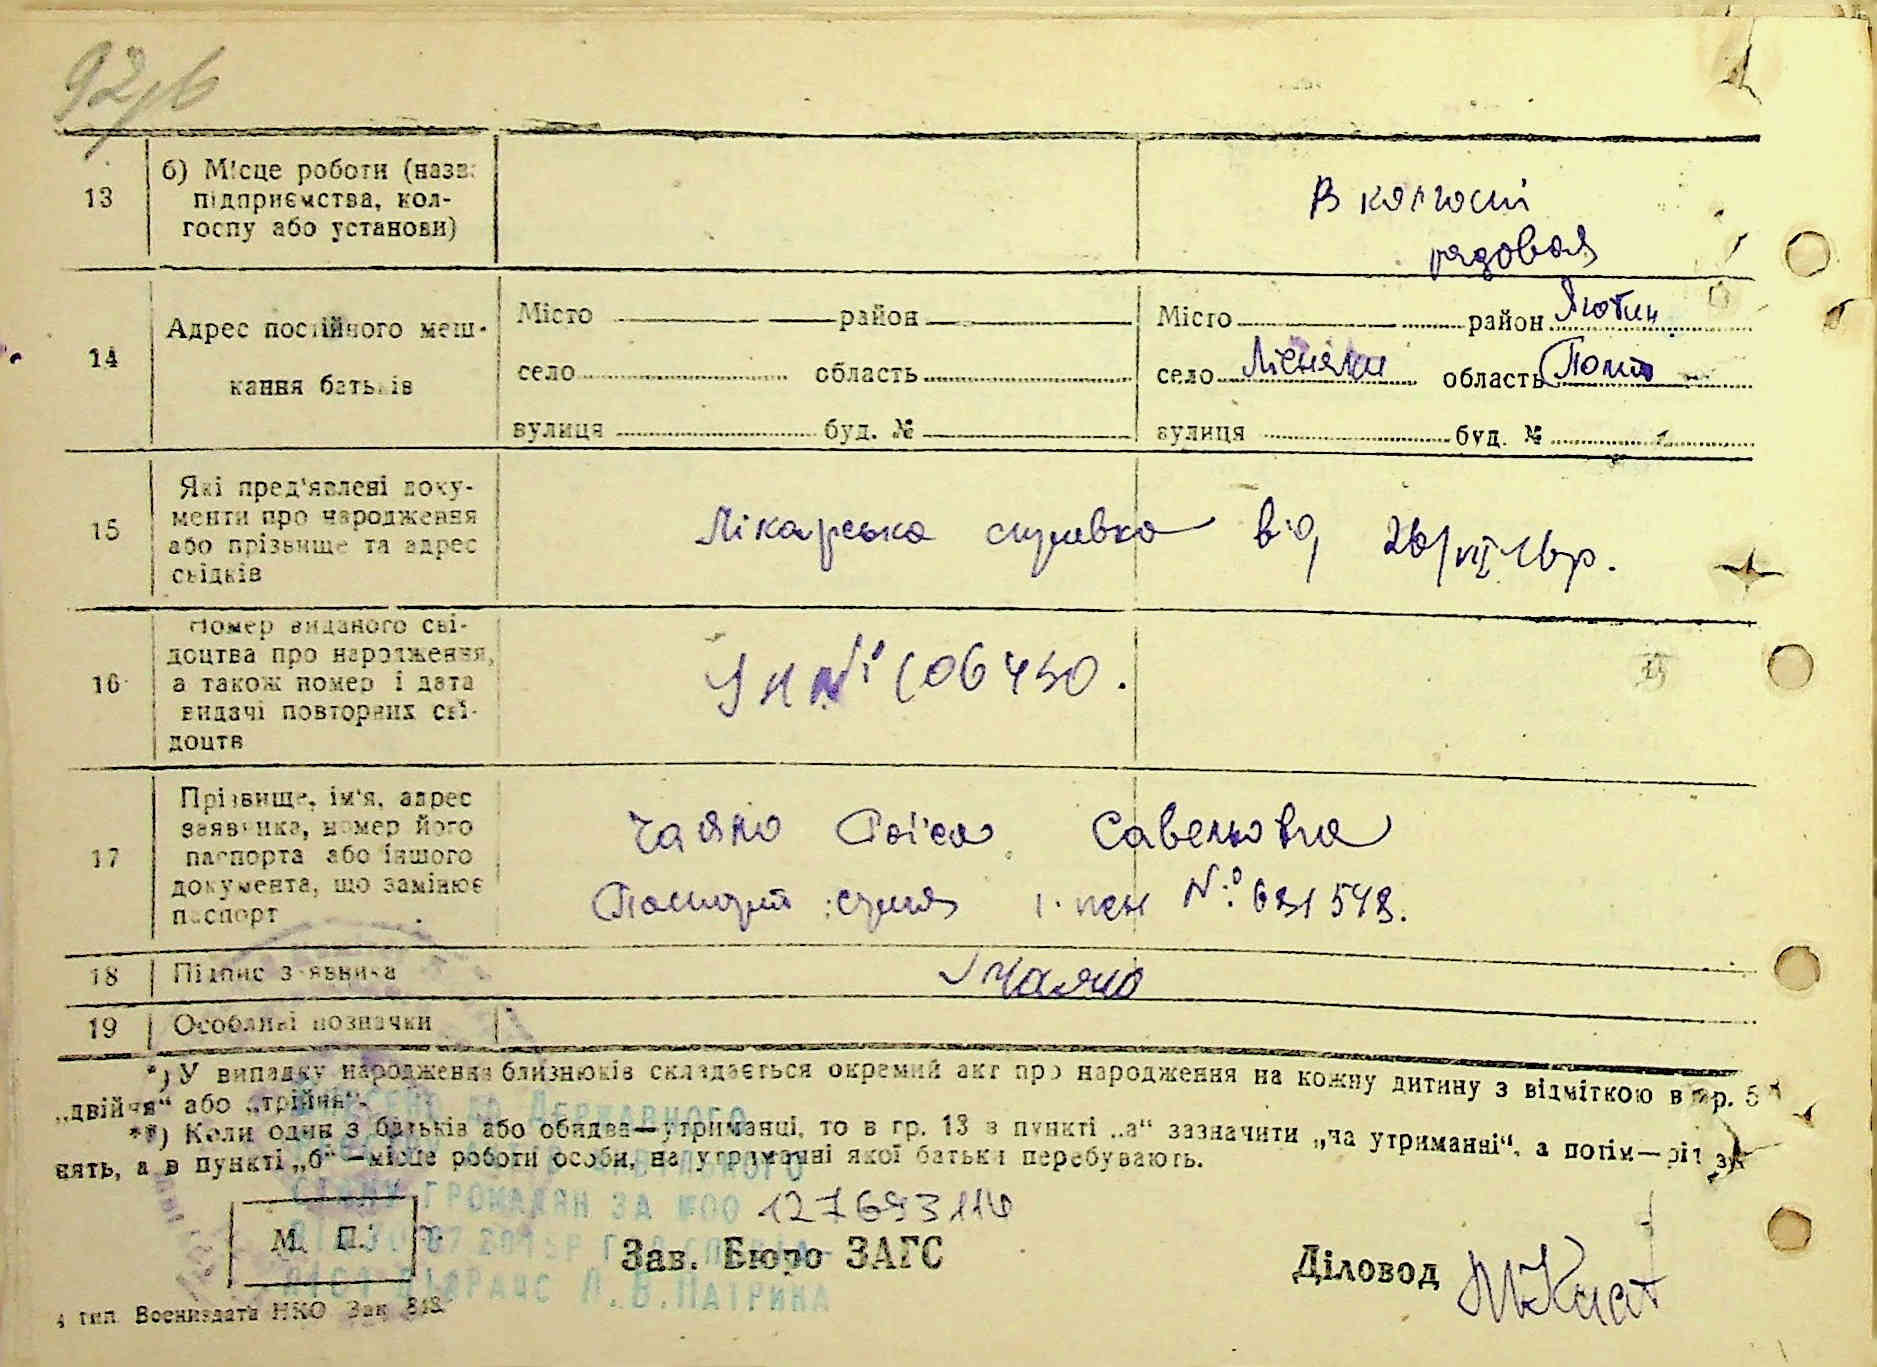 13
б) Місце роботи (назва
підприємства, кол-
госпу або установи)
В колгоспі
рядовая
14
Адрес постійного меш-
кання батьків
Місто район
село область
вулиця буд. №
Місто район Яготин.
село Лісняки область Полт
вулиця буд. №
15
Які пред'явлені доку-
менти про народження
або прізвище та адрес
свідків
Лікарська справка від 26/VII-46р.
16
Номер виданого сві-
доцтва про народження,
а також номер і дата
видачі повторних сві-
доцтв
№ 106450.
17
Прізвище, ім'я, адрес
заявника, номер його
паспорта або іншого
документа, що замінює
паспорт
Савельовна
Паспорт серия № 681548.
18
Підпис заявника
19
Особливі позначки
*) У випадку народження близнюків складається окремий акт про народження на кожну дитину з відміткою в гр. 5
„двійня“ або „трійня“.
**) Коли один з батьків або обидва—утриманці, то в гр. 13 в пункті „а“ зазначити „на утриманні“, а потім—рід за-
нять, а в пункті „б“—місце роботи особи, на утриманні якої батьки перебувають.
до Державного
стану громадян за №00 127693114
Л.В.Патрика
М. П.
Зав. Бюро ЗАГС
Діловод
4 тип. Воениздата НКО Зак. 818